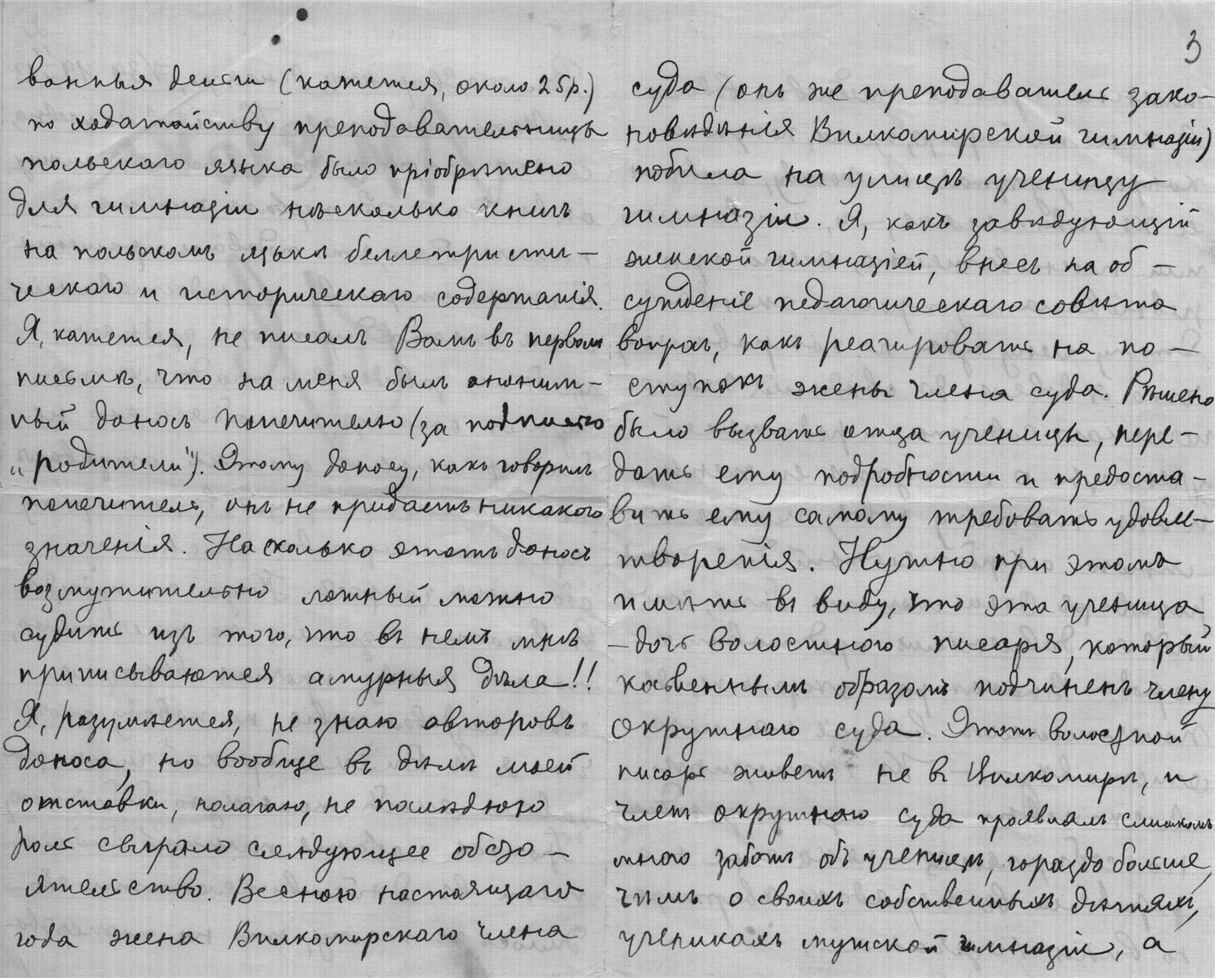 ванныя деньги (кажется, около 25р.)
по ходатайству преподавательницы
польскаго языка было пріобрѣтено
для гимназіи нѣсколько книгъ
на польскомъ языкѣ беллетристи-
ческаго и историческаго содержанія.
Я, кажется, не писалъ Вамъ въ первомъ
письмѣ, что на меня былъ аноним-
ный доносъ попечителю (за подписью
„родители"). Этому доносу, какъ говорилъ
попечитель, онъ не придаетъ никакого
значенія. Насколько этотъ доносъ
возмутительно ложный можно
судить изъ того, что въ немъ мнѣ
приписываются амурныя дѣла!!
Я, разумѣется, не знаю авторовъ
доноса, но вообще въ дѣлѣ моей
отставки, полагаю, не послѣднюю
роль сыграло слѣдующее обсто-
ятельство. Весною настоящаго
года жена Вилкомирскаго члена
3
суда (онъ же преподаватель зако-
новѣдѣнія Вилкомирской гимназіи)
побила на улицѣ ученицу
гимназіи. Я, какъ завѣдующій
женской гимназіей, внесъ на об-
сужденіе педагогическаго совѣта
вопросъ, какъ реагировать на по-
ступокъ жены члена суда. Рѣшено
было вызвать отца ученицы, пере-
дать ему подробности и предоста-
вить ему самому требовать удовле-
творенія. Нужно при этомъ
имѣть въ виду, что эта ученица
- дочь волостного писаря, который
косвеннымъ образомъ подчиненъ члену
Окружнаго суда. Этотъ волостной
писарь живетъ не въ Вилкомирѣ, и
членъ окружнаго суда проявлялъ слишкомъ
много заботъ объ ученицѣ, гораздо больше,
чѣмъ о своихъ собственныхъ дѣтяхъ,
ученикахъ мужской гимназіи, а